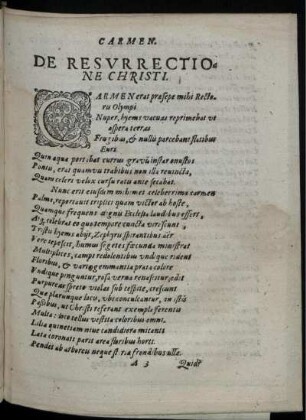 CARMEN.
DE RESVRRECTIO-
NE CHRISTI.
CARMEN erat præsepe mihi Recto-
ris Olympi
Nuper, hyems vacuas reprimebat vt
aspera terras
Frugibus, & nullis parcebant flatibus
Euri.
Quin aqua peribat currus gravis instar onustos
Ponti, erat quamvis trabibus non illa revincta,
Quam celeri velox cursu ratis ante secabat.
Nunc erit eiusdem mihimet celeberrima carmen
Palma, reportavit tristis quam victor ab hoste,
Quamque frequens dignis Ecclesia laudibus effert,
Ast, celebrat eo quo tempore cuncta virescunt
Tristis hyems abijt, Zephyris spirantibus aër
Vere tepescit, humus segetes fæcunda ministrat
Multiplices, campi redolentibus undique rident
Floribus, & varijs gemmantia prata colore
Vndique pinguntur, rosa verna renascitur, edit
Purpureas sponte violas sub cespite, crescunt
Quæ plærumque loco, vbi conculcantur, in istis
Passibus, ut Christi referant exempla ferentis
Multa: loco tellus vestita coloribus omni.
Lilia quinetiam nive candidiora micantis
Lata coronati parit area floribus horti.
Pendet ab arboreis neque
A 3 Quid?